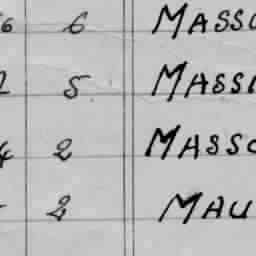 6 6 MASSO
5 MASSI
4 2 MASSO
2 MAU